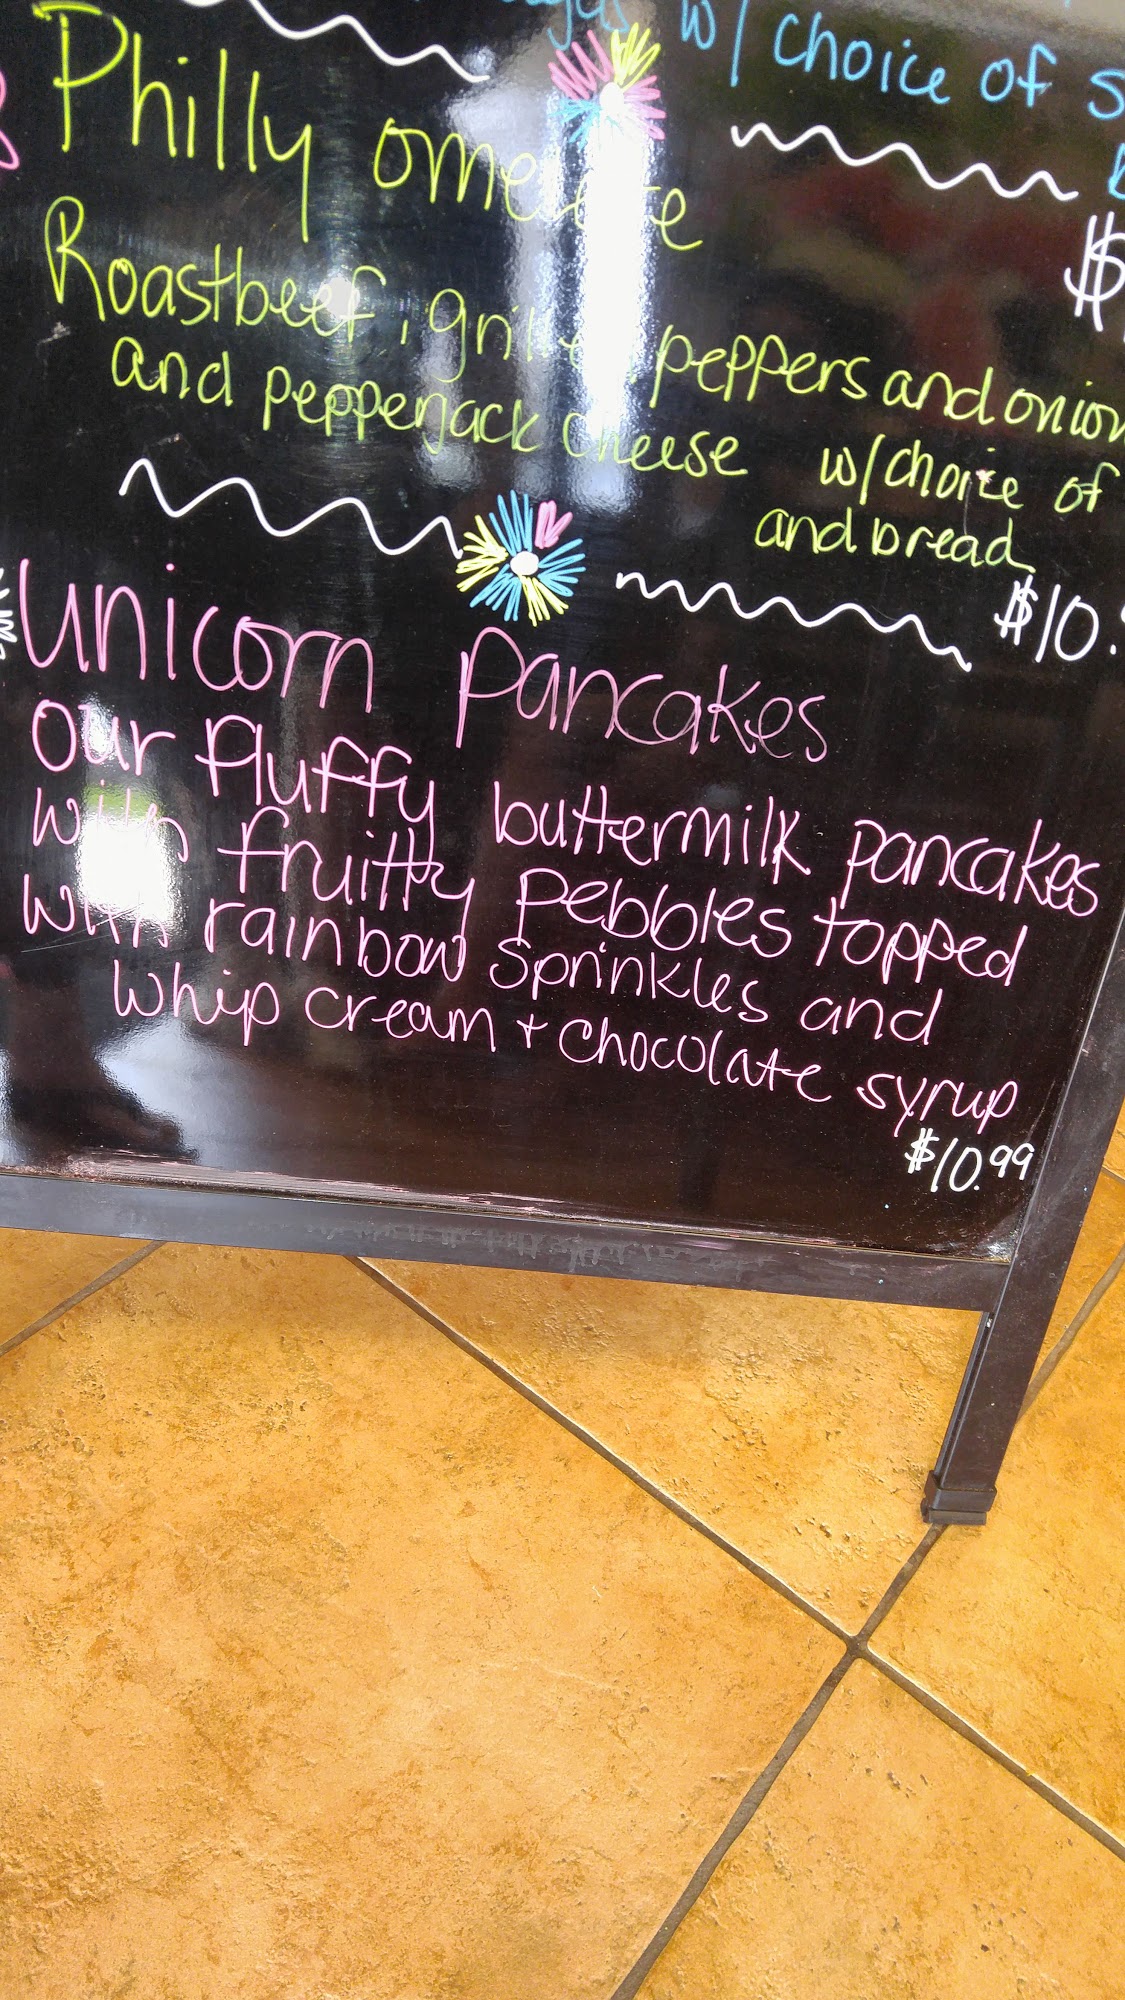 w/ choice of
Philly omelette
Roastbeef, grilled peppers and onion
and pepperjack cheese w/choice of
and bread
$10.
Unicorn Pancakes
our fluffy buttermilk pancakes
with fruitty pebbles topped
with rainbow sprinkles and
whip cream + chocolate syrup
$10.99